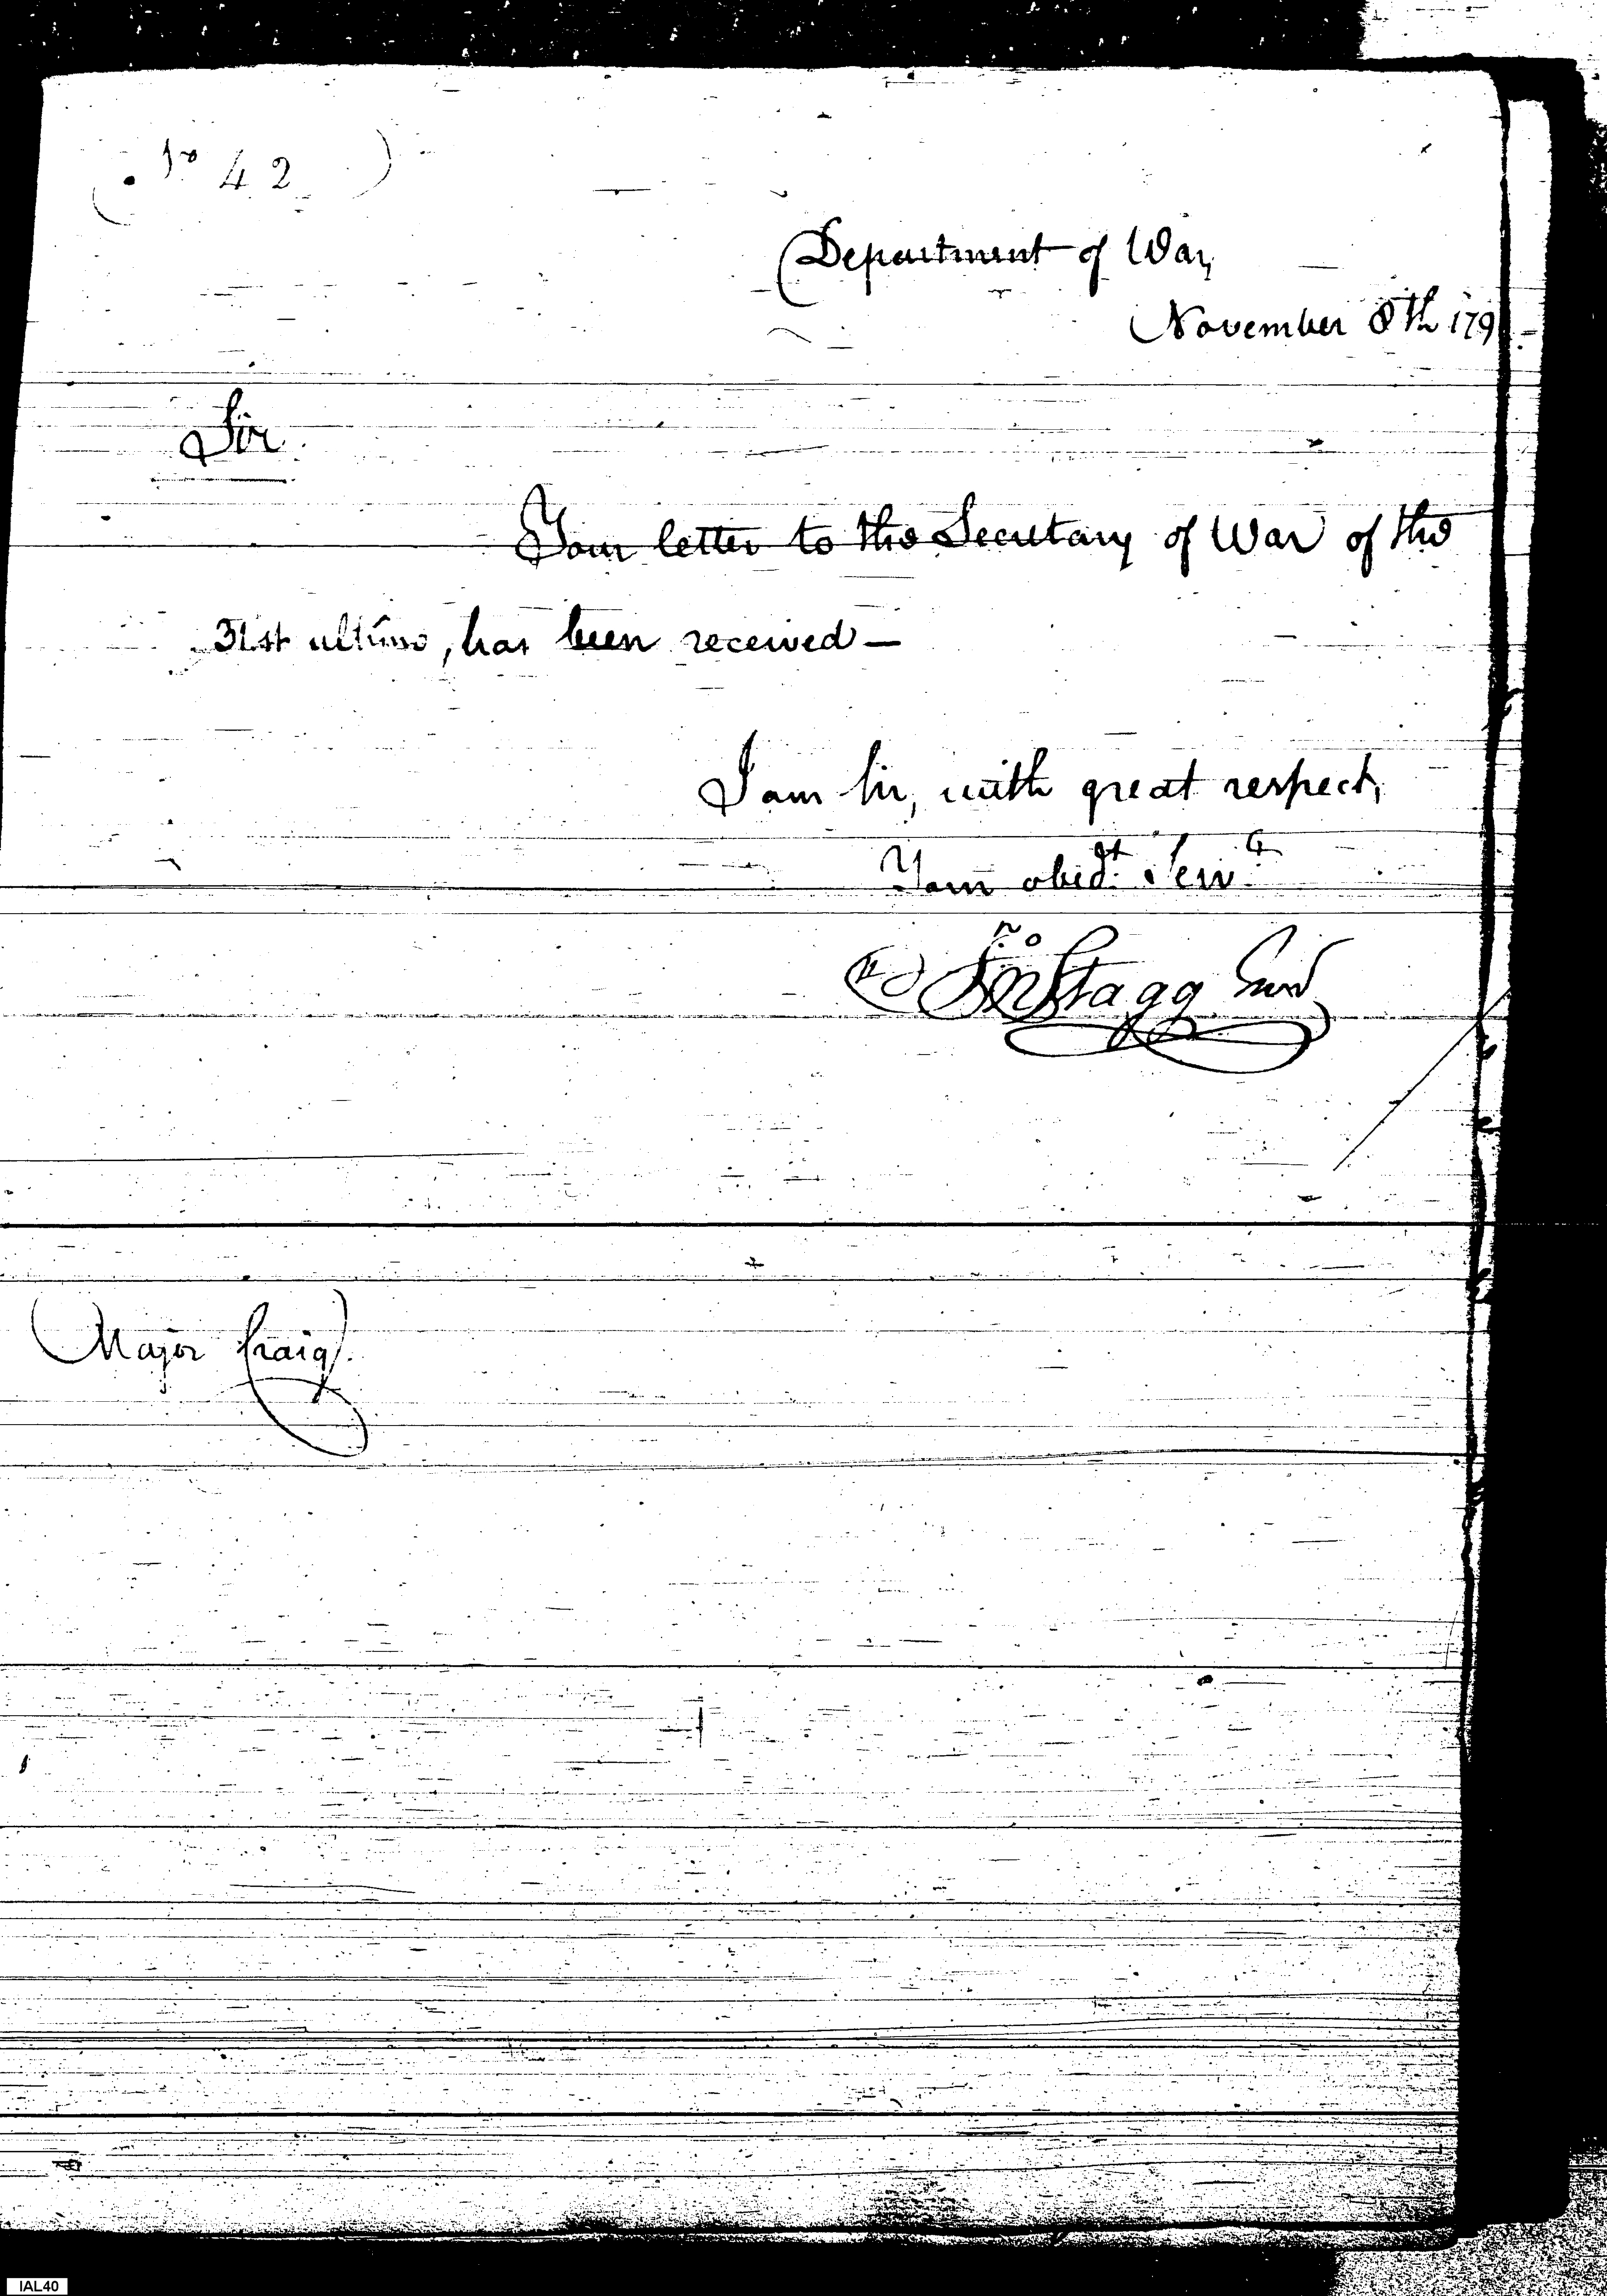 (No 42)
Department of War,
November 8th 179
Sir
Your letter to the Secretary of War of the
31st ultimo, has been received—
I am Sir, with great respect,
Your obedt. Servt.
Jno Stagg Junr
(Major Craig).
IAL40